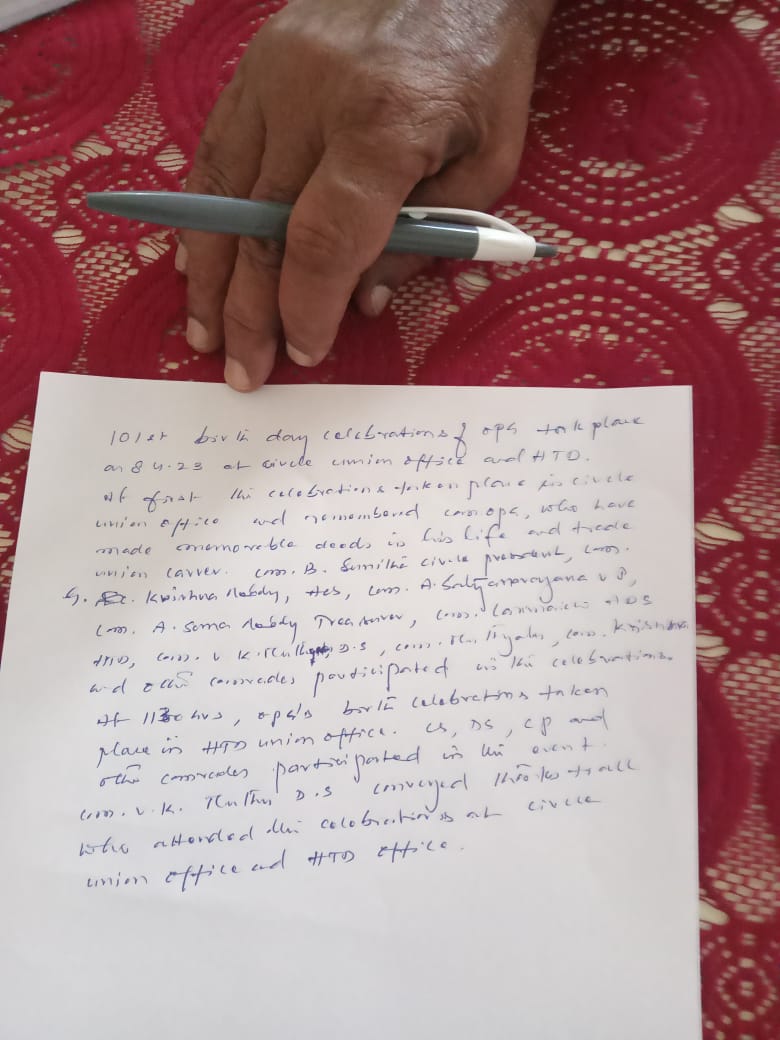 101st birth day celebrations of opg took place
on 8 4.23 at circle union office and HTD.
At first the celebrations taken place in circle
union office and remembered com opg, who have
made memorable deeds in his life and trade
union carrer. com. B. Sunitha circle president, com.
G. Krishna Reddy, com. A. Satyanarayana V P,
com. A. Soma Reddy Treasurer, com.
HTD, com. V K. D.S, com. com. Krishna
and other comrades participated in the celebrations
At 1130 hrs, opg's birth celebrations taken
place in HTD union office. CS, DS, CP and
other comrades participated in the event.
com. V. K. D.S conveyed thanks to all
who attended the celebrations at circle
union office and HTD office.